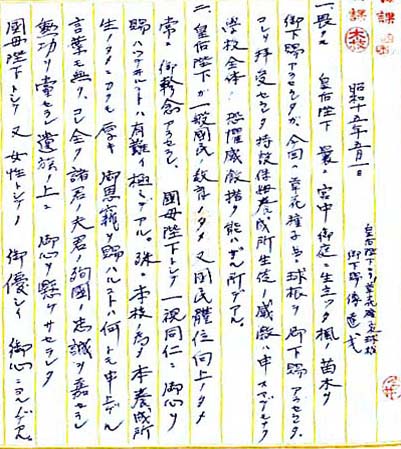 昭和十五年五月一日
皇后陛下ヨリ草花種子球根
御下賜傳達式
一、畏クモ 皇后陛下 曩ニ宮中御庭ニ生立ツ楓ノ苗木ヲ
御下賜アラセラレ、今回ハ草花種子并ニ球根ヲ御下賜アラセラル、
コレヲ拝受セラル特設保姆養成所生徒ノ感激ハ申スマデモナク
学校全体ノ恐懼感激措ク能ハザル所デアル。
二、皇后陛下ガ一般國民ノ教育ノタメ又國民體位向上ノタメ
常ニ御軫念アラセラレ、國母陛下トシテ一視同仁ニ御心ヲ
賜ハツテヰルコトハ有難イ極ミデアル。殊ニ本校ノ為メ本養成所
生ノタメニカクモ厚キ御恩籠ヲ賜ハルコトハ何トモ申上ゲル
言葉モ無ク、コレ全ク諸君ノ夫君ノ殉國ノ忠誠ヲ嘉セラレ
無功ヲ賞セラレ遺族ノ上ニ 御心ヲ懸ケサセラルヽ
國母陛下トシテ又女性トシテノ 御優シイ 御心ニヨルデアル。